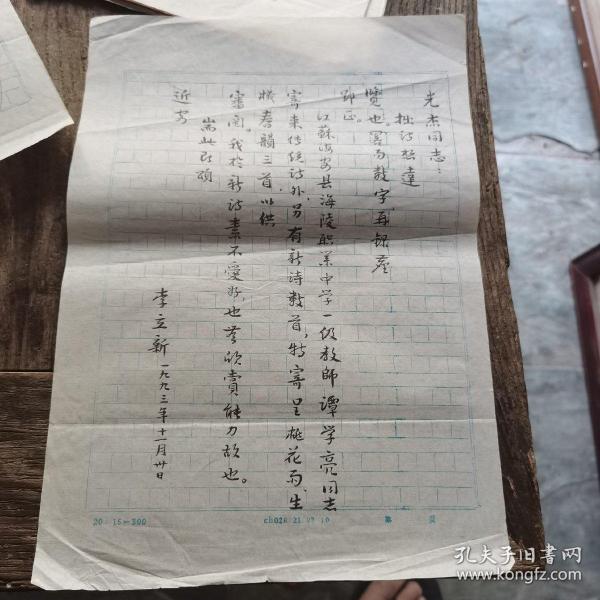 光杰同志：
拙诗想达
览也。写为数字，再录呈
郢正。
江苏海安县海陵职业中学一级教师谭学亮同志
寄来传统诗外另有新诗数首，特寄呈桃花雨、生
春韵三首以供
审阅。我于新诗素不爱好，也无欣赏能力故也。
耑此即颂
近安
李立新 一九九三年十一月卅日
20×15=300
第 页
孔夫子旧书网
www.kongfz.com